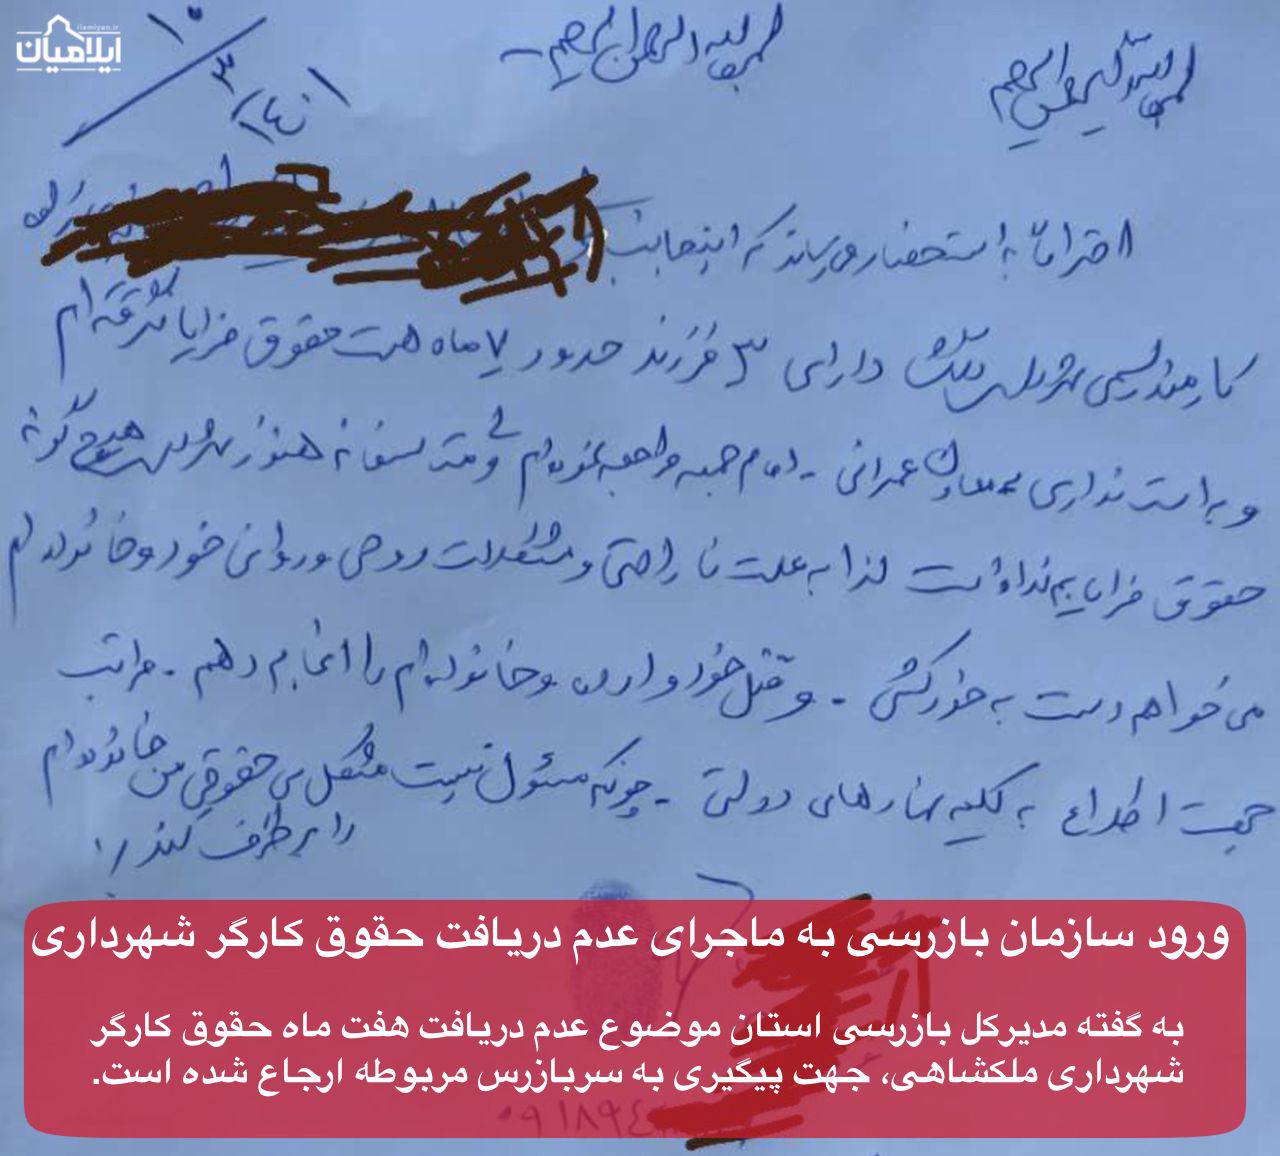 ilamiyan.ir
ایلامیان
بسم الله الرحمن الرحیم
۱۴۰۱/۳/۱۰
احتراماً به استحضار می‌رساند که اینجانب
کارمند رسمی شهرداری دارای ۳ فرزند حدود ۷ ماه هست حقوق مزایا نگرفته ام
و به استانداری معاون عمرانی - امام جمعه مراجعه نموده ام ولی متاسفانه هنوز شهرداری هیچ گونه
حقوق مزایایم نداده است لذا به علت ناراحتی و مشکلات روحی و روانی خود و خانواده ام
می خواهم دست به خودکشی - و قتل خود و خانواده ام را انجام دهم - مراتب
جهت اطلاع به کلیه نهادهای دولتی - چونکه مسئول نیست مشکل بی حقوقی من خانواده ام
را برطرف کند
ورود سازمان بازرسی به ماجرای عدم دریافت حقوق کارگر شهرداری
به گفته مدیرکل بازرسی استان موضوع عدم دریافت هفت ماه حقوق کارگر
شهرداری ملکشاهی، جهت پیگیری به سربازرس مربوطه ارجاع شده است.
۰۹۱۸۹۴